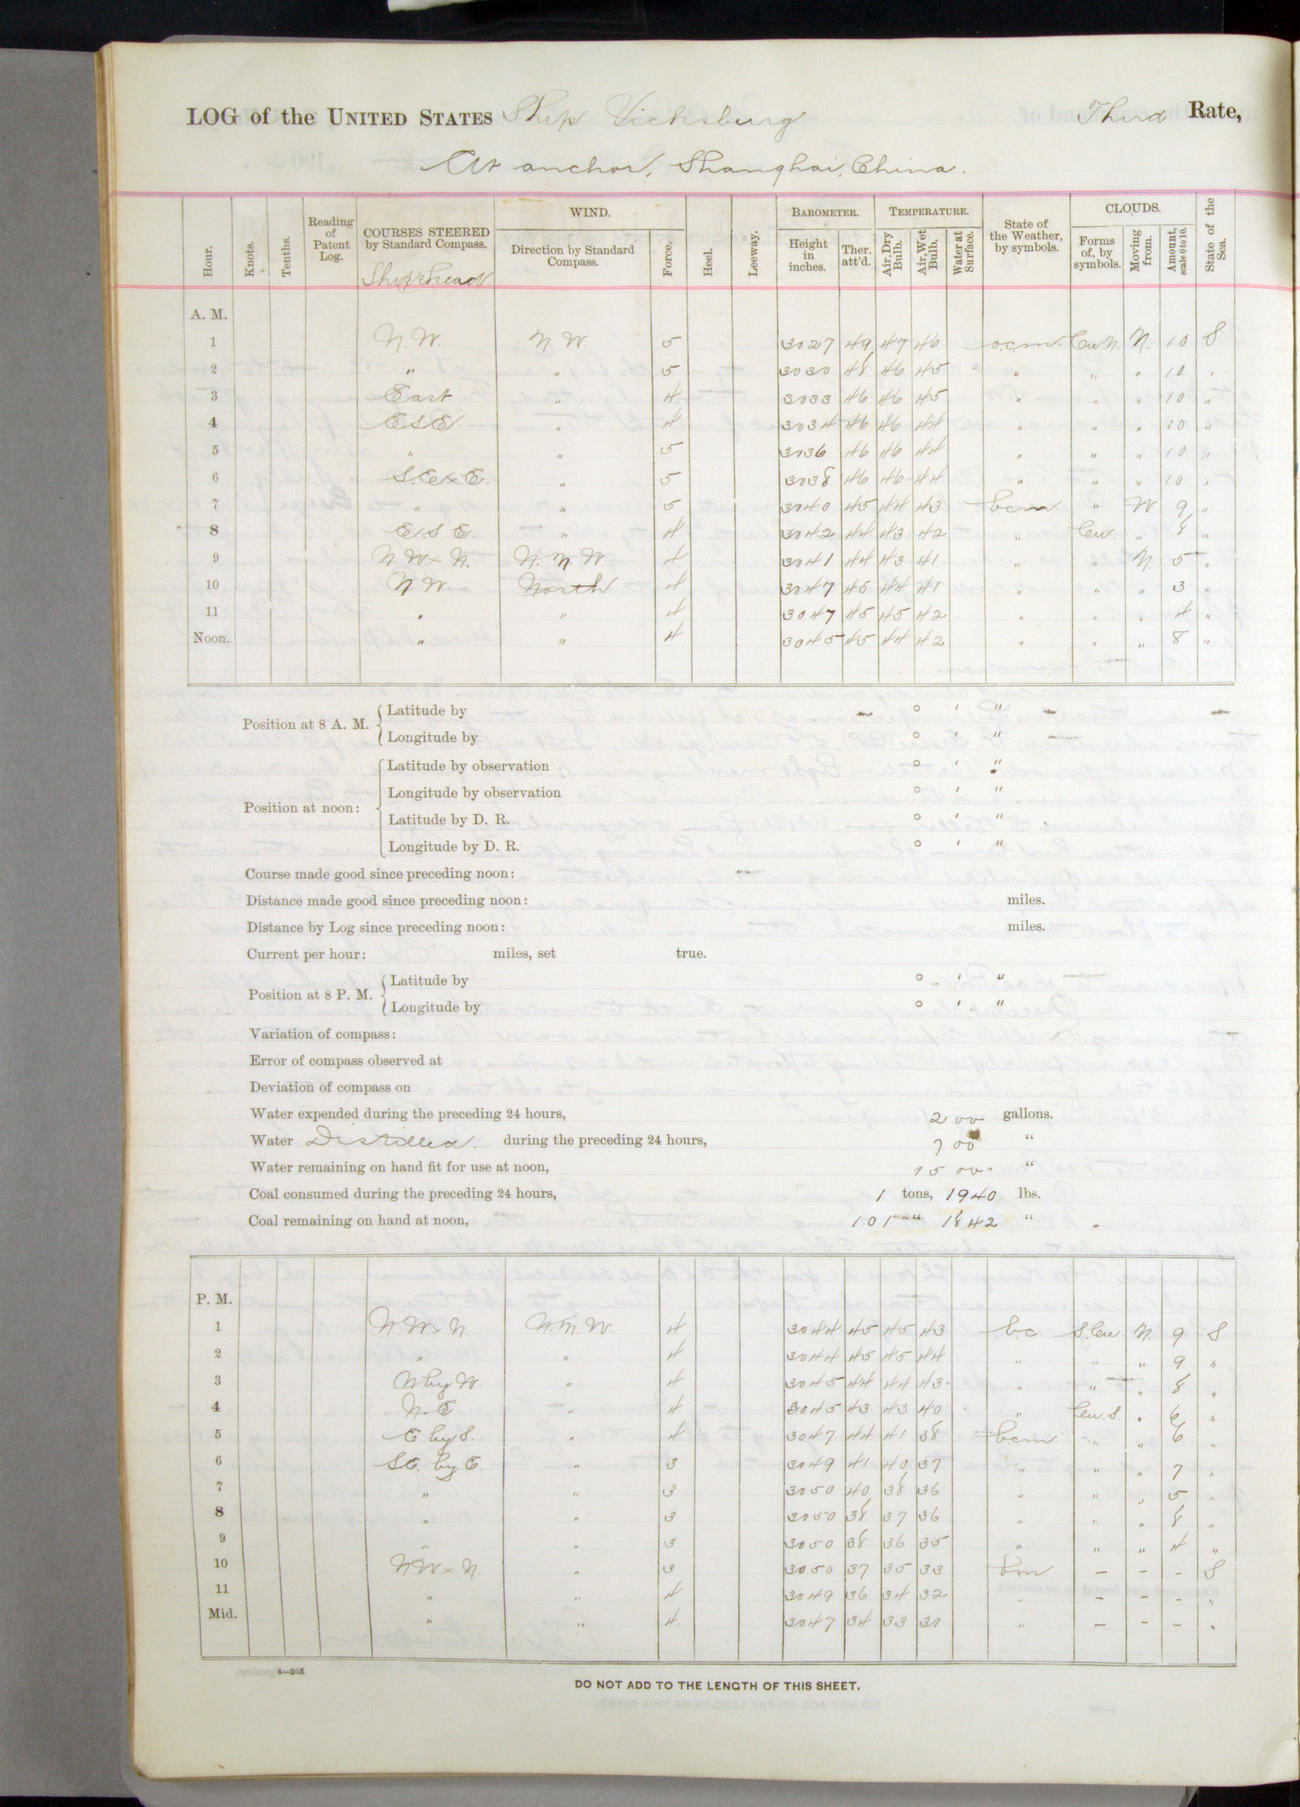 LOG of the UNITED STATES Ship Vicksburg Third Rate,
At anchor, Shanghai, China.
Hour. Knots. Tenths. Reading of Patent Log. COURSES STEERED by Standard Compass. Ship's head WIND. Direction by Standard Compass. Force. Heel. Leeway. BAROMETER. Height in inches. Ther. att'd. TEMPERATURE. Air, Dry Bulb. Air, Wet Bulb. Water at Surface. State of the Weather, by symbols. CLOUDS. Forms of, by symbols. Moving from. Amount, scale 0 to 10. State of the Sea.
A. M.
1 N.W. N.W. 5 3027 49 47 46 o.c.m. Cu.N N. 10 S
2 " " 5 3030 48 46 45 " " " 10 "
3 East " 4 3033 46 46 45 " " " 10 "
4 ESE " 4 3034 46 46 44 " " " 10 "
5 " " 5 3036 46 46 44 " " " 10 "
6 S.ExE. " 5 3038 46 46 44 " " " 10 "
7 " " 5 3040 45 44 43 bcm " W 9 "
8 E.S.E. " 4 3042 44 43 42 " Cu. " 8 "
9 N.WxN. N.N.W 4 3041 44 43 41 " " N. 5 "
10 N W. North 4 3047 45 44 41 " " " 3 "
11 " " 4 3047 45 45 42 " " " 4 "
Noon. " " 4 3045 45 44 42 " " " 8 "
Position at 8 A. M. Latitude by ° ' "
Longitude by ° ' "
Position at noon: Latitude by observation ° ' "
Longitude by observation ° ' "
Latitude by D. R. ° ' "
Longitude by D. R. ° ' "
Course made good since preceding noon:
Distance made good since preceding noon: miles.
Distance by Log since preceding noon: miles.
Current per hour: miles, set true.
Position at 8 P. M. Latitude by ° ' "
Longitude by ° ' "
Variation of compass:
Error of compass observed at
Deviation of compass on
Water expended during the preceding 24 hours, 200 gallons.
Water Distilled. during the preceding 24 hours, 700 "
Water remaining on hand fit for use at noon, 1500 "
Coal consumed during the preceding 24 hours, 1 tons, 1940 lbs.
Coal remaining on hand at noon, 101 " 1842 "
P. M.
1 N.WxN N.N.W 4 3044 45 45 43 bc S.Cu N. 9 S
2 " " 4 3044 45 45 44 " " " 9 "
3 N by W. " 4 3045 44 44 43 " " " 8 "
4 N.E. " 4 3045 43 43 40 " Cu.S. " 6 "
5 E by S. " 4 3047 44 41 38 bcm " " 6 "
6 SE. by E. " 3 3049 41 40 37 " " " 7 "
7 " " 3 3050 40 38 36 " " " 5 "
8 " " 3 3050 38 37 36 " " " 8 "
9 " " 3 3050 38 36 35 " " " 4 "
10 NWxN. " 3 3050 37 35 33 bm – – – S
11 " " 4 3049 36 34 32 " – – – "
Mid. " " 4 3047 34 33 31 " – – – "
4—265
DO NOT ADD TO THE LENGTH OF THIS SHEET.